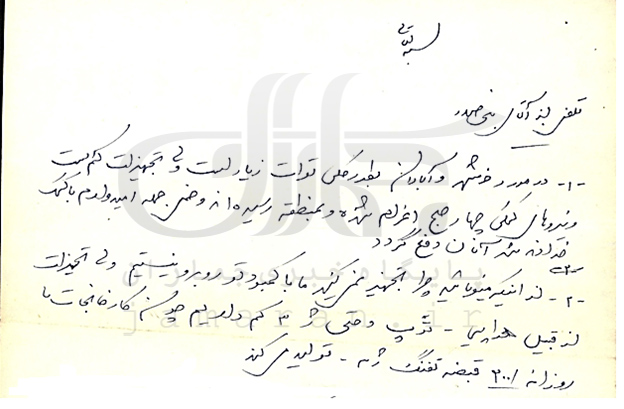 بسمه تعالی
تلفنی از آقای بنی صدر
-۱- در مورد خرمشهر و آبادان بطور کلی قوات زیاد است ولی تجهیزات کم است
و نیروهای کمکی چهار صبح اعزام شده و بمنطقه رسیده اند امیدوارم با کمک
خداوند شر آنان دفع گردد
-۲- از اینکه چرا تجهیز نمی کنید ما با کمبود روبرو نیستیم ولی تجهیزات
از قبیل - توپ و حتی ژ ۳ کم داریم چون کارخانجات ما
روزانه قبضه تفنگ ژ۳ - تولید می کند
پایگاه خبری جماران
jamaran.ir